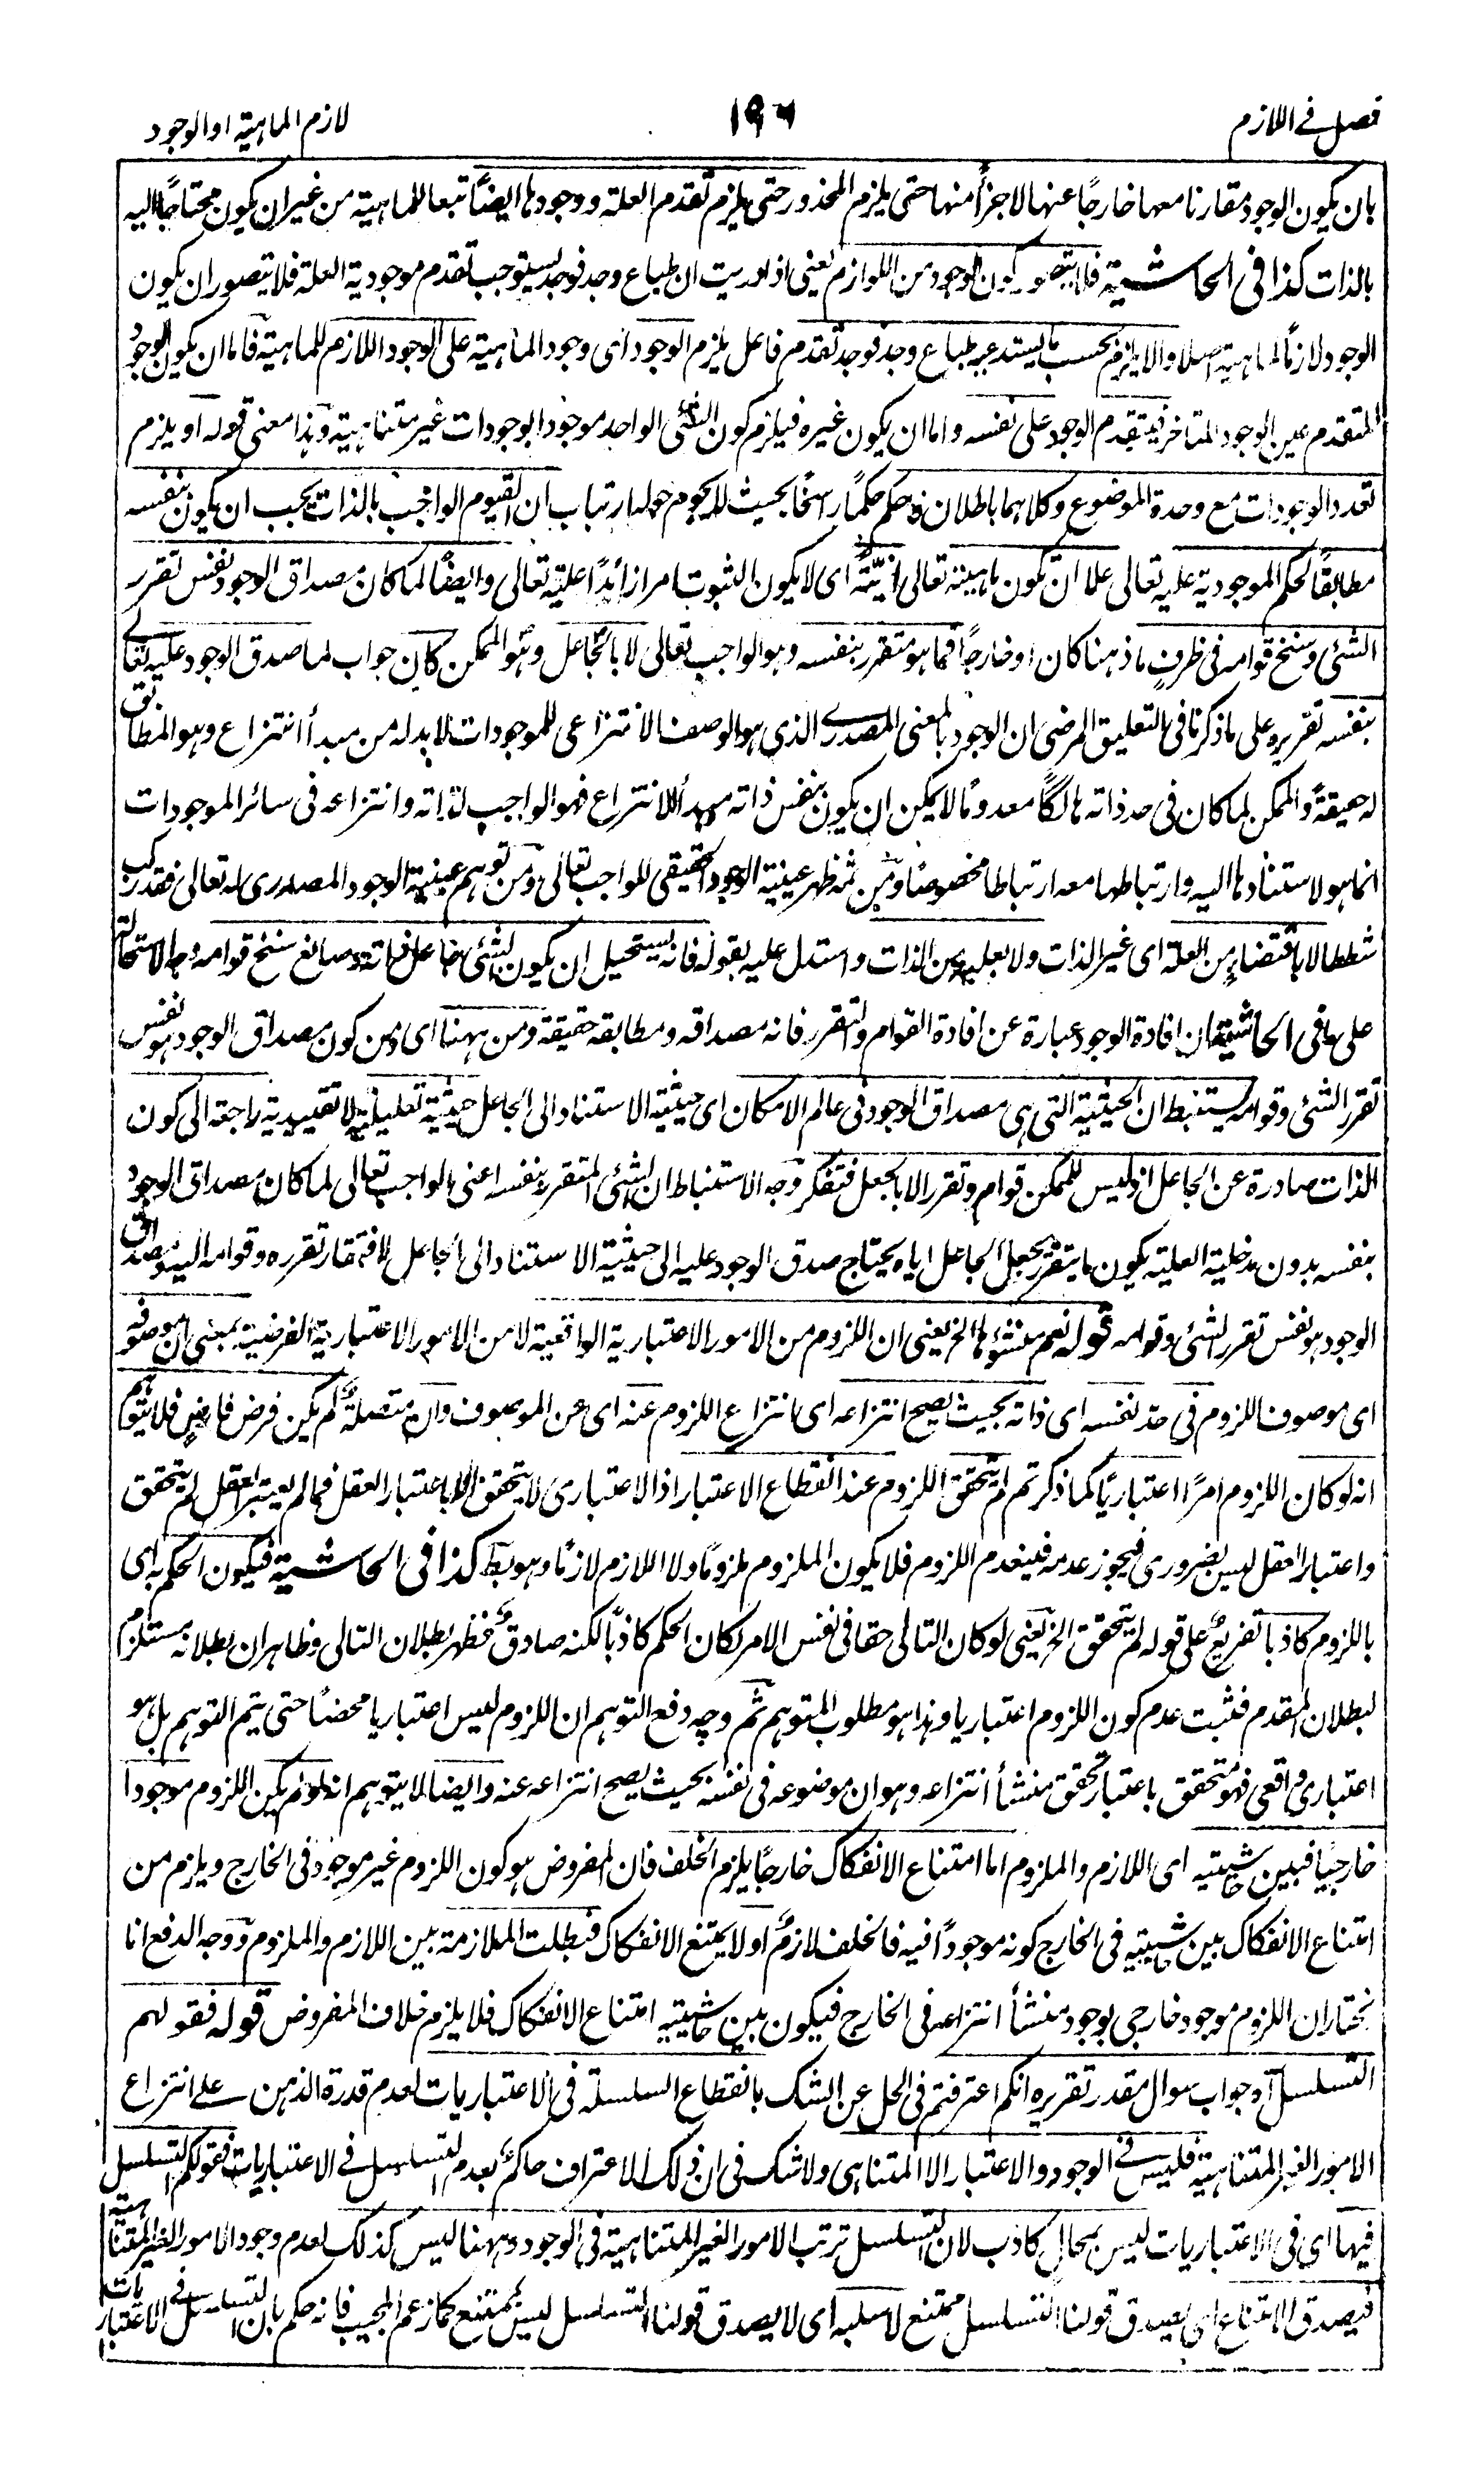 فصل في اللازم
١٩٦
لازم الماهية او الوجود
بان يكون الوجود مقارنا معها خارجًا عنها لا جزأً منها حتى يلزم المحذور حتى يلزم تقدم العلة ووجودها ايضًا تبعا للماهية من غير ان يكون محتاجًا اليه
بالذات كذا في الحاشية فلا يتصور كون الوجود من اللوازم يعني اذا دريت ان طباع وجد فوجد يستوجب تقدم موجودية العلة فلا يتصور ان يكون
الوجود لازمًا لماهية اصلا والا يلزم بحسب ما يستدعيه طباع وجد فوجد تقدم فاعل يلزم الوجود اى وجود الماهية على الوجود اللازم للماهية فاما ان يكون الوجود
المتقدم عين الوجود المتاخر فيتقدم الوجود على نفسه واما ان يكون غيره فيلزم كون الشئ الواحد موجودا بوجودات غير متناهية وهذا معنى قوله او يلزم
تعدد الوجودات مع وحدة الموضوع وكلاهما باطلان فاحكم حكمًا راسخًا بحيث لا يحوم حوله ارتياب ان القيوم الواجب بالذات يجب ان يكون بنفسه
مطابقًا لحكم الموجودية عليه تعالى علما ان تكون ماهيته تعالى انيّته اى لا يكون الثبوت امرا زائدًا عليه تعالى وايضًا لما كان مصداق الوجود نفس تقرر
الشئ وسنخ قوامه في ظرف ما ذهنا كان او خارجًا فما هو متقرر بنفسه وهو الواجب تعالى لا بالجاعل وهو الممكن كان جواب لما صدق الوجود عليه تعالى
بنفسه تقريره على ما ذكرنا في التعليق المرضي ان الوجود بالمعنى المصدرى الذى هو الوصف الانتزاعي للموجودات لا بد له من مبدأ انتزاع وهو المطابق
له حقيقةً والممكن لما كان في حد ذاته هالكًا معدومًا لا يمكن ان يكون بنفس ذاته مبدأ للانتزاع فهو الواجب لذاته وانتزاعه في سائر الموجودات
انما هو لاستنادها اليه وارتباطها معه ارتباطا مخصوصًا ومن ثم ظهر عينية الوجود الحقيقي للواجب تعالى ومن توهم عينية الوجود المصدرى له تعالى فقد ركب
شططا لا باقتضاء من العلة اى غير الذات ولا بعلية من الذات واستدل عليه بقوله فانه يستحيل ان يكون الشئ جاعل ذاته وصانع سنخ قوامه وجه الاستحالة
على ما في الحاشية ان افادة الوجود عبارة عن افادة القوام والتقرر فانه مصداقه ومطابقه حقيقة ومن ههنا اى ومن كون مصداق الوجود هو نفس
تقرر الشئ وقوامه يستنبط ان الحيثية التي هي مصداق الوجود في عالم الامكان اى حيثية الاستناد الى الجاعل حيثية تعليلية لا تقييدية راجعة الى كون
الذات صادرة عن الجاعل اذ ليس للممكن قوام وتقرر الا بالجعل فتفكر وجه الاستنباط ان الشئ المتقرر بنفسه اعني الواجب تعالى لما كان مصداق الوجود
بنفسه بدون مدخلية العلية يكون ما يتقرر بجعل الجاعل اياه يحتاج صدق الوجود عليه الى حيثية الاستناد الى الجاعل لافتقار تقرره وقوامه اليه ومصداق
الوجود هو نفس تقرر الشئ وقوامه قوله نعم منشؤها الخ يعني ان اللزوم من الامور الاعتبارية الواقعية لا من الامور الاعتبارية الفرضية بمعنى ان موصوفه
اى موصوف اللزوم في حد نفسه اى ذاته بحيث يصح انتزاعه اى انتزاع اللزوم عنه اى عن الموصوف وان وصليةٌ لم يكن فرض فارض فلا يتوهم
انه لو كان اللزوم امرًا اعتباريًا كما ذكرتم لم يتحقق اللزوم عند انقطاع الاعتبار اذ الاعتبارى لا يتحقق الا باعتبار العقل فما لم يعتبر العقل لم يتحقق
واعتبار العقل ليس بضرورى فيجوز عدمه فينعدم اللزوم فلا يكون الملزوم ملزومًا ولا اللازم لازمًا وهو بط كذا في الحاشية فيكون الحكم به اى
باللزوم كاذبا تفريع على قوله لم يتحقق الخ يعني لو كان التالي حقا في نفس الامر لكان الحكم كاذبًا لكنه صادق فظهر بطلان التالي وظاهر ان بطلانه مستلزم
لبطلان المقدم فثبت عدم كون اللزوم اعتباريا وهذا هو مطلوب المتوهم ثم وجه دفع التوهم ان اللزوم ليس اعتباريا محضًا حتى يتم التوهم بل هو
اعتبارى واقعي فهو متحقق باعتبار تحقق منشأ انتزاعه وهو ان موضوعه في نفسه بحيث يصح انتزاعه عنه وايضا لا يتوهم انه لو لم يكن اللزوم موجودا
خارجيًا فبين حاشيتيه اى اللازم والملزوم اما امتناع الانفكاك خارجًا يلزم الخلف فان المفروض هو كون اللزوم غير موجود في الخارج ويلزم من
امتناع الانفكاك بين حاشيتيه في الخارج كونه موجودًا فيه فالخلف لازمٌ او لا يمتنع الانفكاك فبطلت الملازمة بين اللازم والملزوم ووجه الدفع انا
نختار ان اللزوم موجود خارجي بوجود منشأ انتزاعه في الخارج فيكون بين حاشيتيه امتناع الانفكاك فلا يلزم خلاف المفروض قوله فقولهم
التسلسل آه جواب سوال مقدر تقريره انكم اعترفتم في الحل عن الشك بانقطاع السلسلة في الاعتباريات لعدم قدرة الذهن على انتزاع
الامور الغير المتناهية فليس في الوجود والاعتبار الا المتناهى ولا شك في ان ذلك الاعتراف حاكم بعدم التسلسل في الاعتباريات فقولكم التسلسل
فيها اى في الاعتباريات ليس بمحال كاذب لان التسلسل ترتب الامور الغير المتناهية في الوجود وههنا ليس كذلك لعدم وجود الامور الغير المتناهية
فيصدق الامتناع اى يصدق قولنا التسلسل ممتنع لا سلبه اى لا يصدق قولنا التسلسل ليس بممتنع كما زعم المجيب فانه حكم بان التسلسل في الاعتباريات